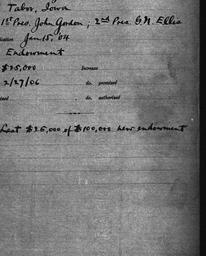 Tabor, Iowa
1st Pres. John Gordon; 2nd Pres G.N. Ellis
Jan 15, '04
Endowment
$25,000 Increase
2/27/06 do. promised
do. authorized
Last $25,000 of $100,000 new endowment